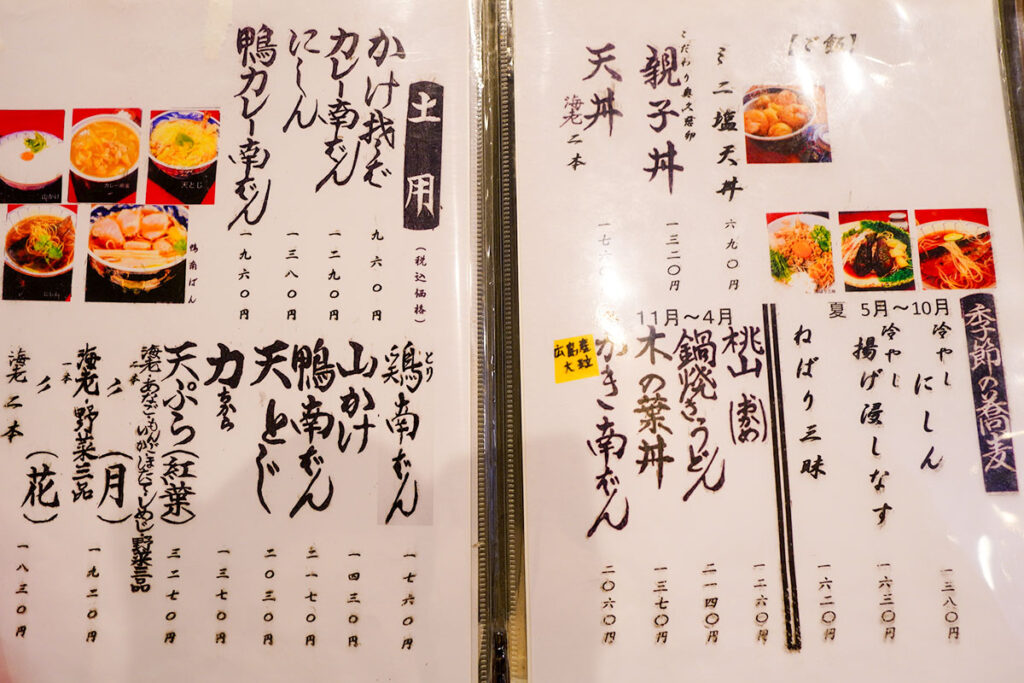 【ご飯】
ミニ塩天丼
六九〇円
こだわり奥久慈卵
親子丼
一三二〇円
天丼
海老二本
季節の蕎麦
夏 5月～10月
冷やし にしん
一三八〇円
冷やし 揚げ浸しなす
一六三〇円
ねばり三昧
一六二〇円
11月～4月
桃山(おかめ)
一二六〇円
鍋焼きうどん
二一四〇円
木の葉丼
一三七〇円
広島産
大粒
かき南ばん
二〇六〇円
土用
(税込価格)
九六〇円
カレー南ばん
一二九〇円
にしん
一三八〇円
鴨カレー南ばん
一九六〇円
山かけ
カレー南蛮
天とじ
にしん
鴨南ばん
とり
鶏南ばん
一七六〇円
山かけ
一四三〇円
鴨南ばん
二一七〇円
天とじ
二〇三〇円
力
ちから
一三七〇円
天ぷら(紅葉)
三二七〇円
海老二本
野菜三品
〃(月)
海老一本
野菜三品
一九二〇円
〃(花)
海老二本
一八三〇円